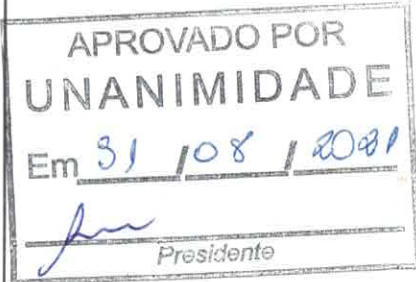 APROVADO POR
UNANIMIDADE
Em 31 / 08 / 2021
Presidente